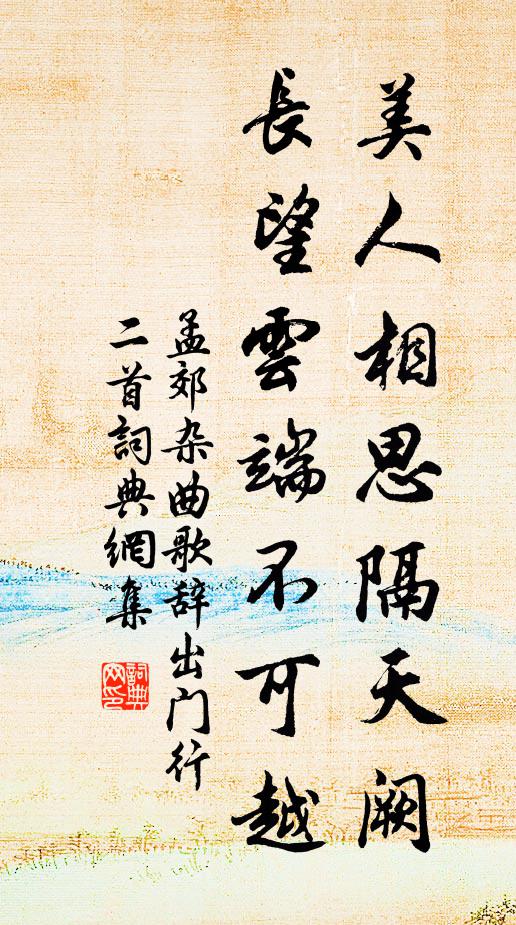 美人相思隔天闕
長望雲端不可越
孟郊杂曲歌辞出门行
二首詞典網集
詞典网印